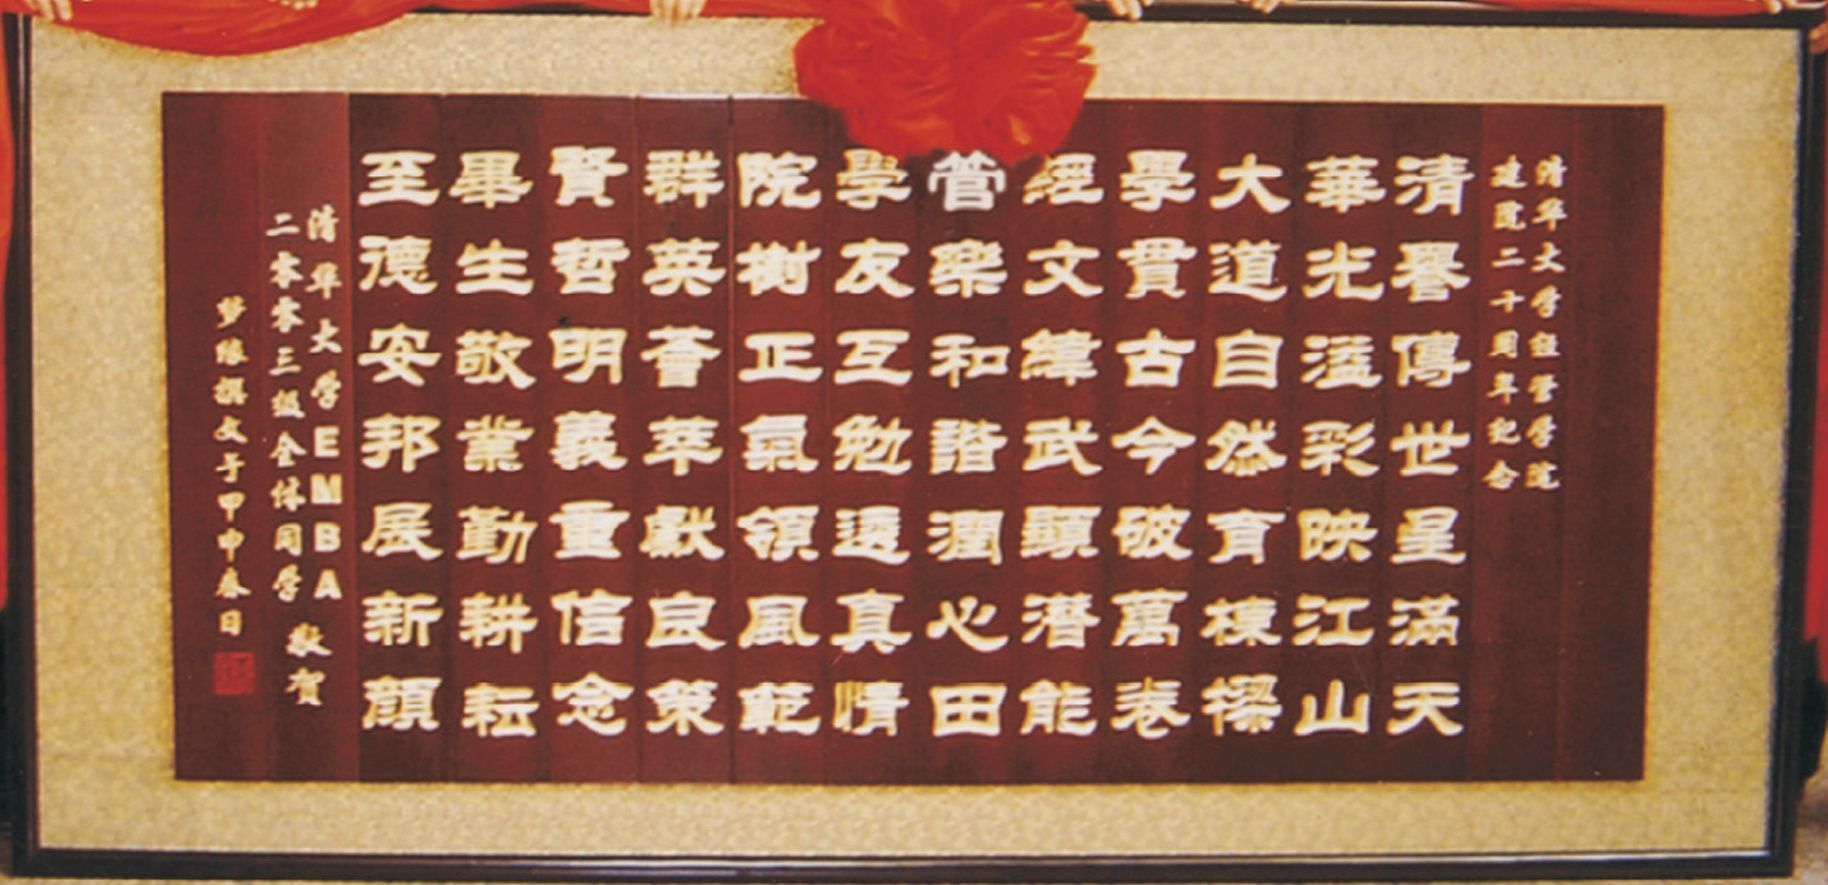 清华大学经管学院
建院二十周年纪念
清譽傳世呈滿天
華光溢彩映江山
大道自然育棟樑
學貫古今破萬卷
經文緯武顯潛能
管樂和諧潤心田
學友互勉邊真情
院樹正氣領風範
群英薈萃獻良策
賢哲明義重信念
畢生敬業勤耕耘
至德安邦展新顏
清华大学EMBA
二零零三级全体同学 敬贺
梦缘撰文于甲申春日